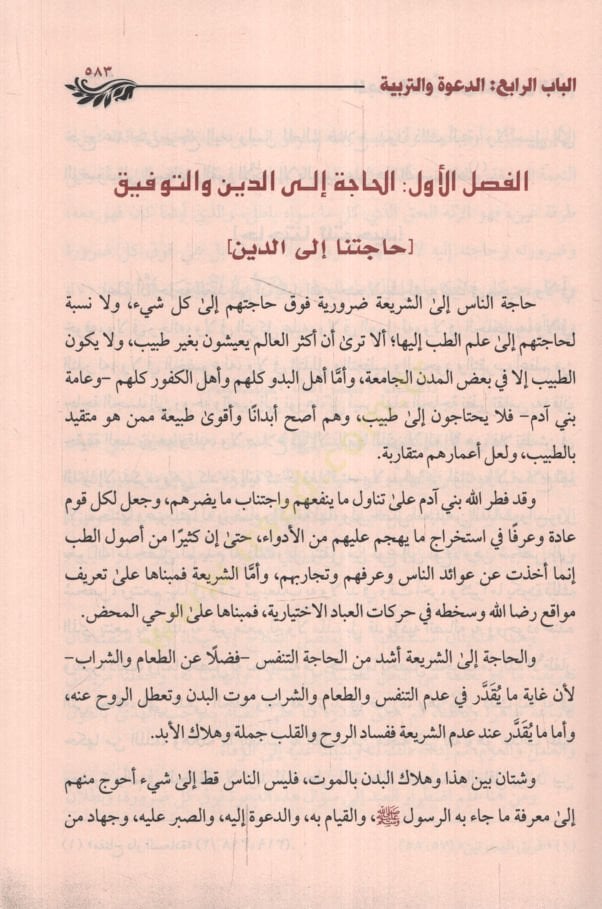 ٥٨٣
الباب الرابع: الدعوة والتربية
الفصل الأول: الحاجة إلى الدين والتوفيق
[حاجتنا إلى الدين]
حاجة الناس إلىٰ الشريعة ضرورية فوق حاجتهم إلىٰ كل شيء، ولا نسبة
لحاجتهم إلىٰ علم الطب إليها؛ ألا ترىٰ أن أكثر العالم يعيشون بغير طبيب، ولا يكون
الطبيب إلا في بعض المدن الجامعة، وأمَّا أهل البدو كلهم وأهل الكفور كلهم -وعامة
بني آدم- فلا يحتاجون إلىٰ طبيب، وهم أصح أبدانًا وأقوىٰ طبيعة ممن هو متقيد
بالطبيب، ولعل أعمارهم متقاربة.
وقد فطر الله بني آدم علىٰ تناول ما ينفعهم واجتناب ما يضرهم، وجعل لكل قوم
عادة وعرفًا في استخراج ما يهجم عليهم من الأدواء، حتىٰ إن كثيرًا من أصول الطب
إنما أخذت عن عوائد الناس وعرفهم وتجاربهم، وأمَّا الشريعة فمبناها علىٰ تعريف
مواقع رضا الله وسخطه في حركات العباد الاختيارية، فمبناها علىٰ الوحي المحض.
والحاجة إلىٰ الشريعة أشد من الحاجة التنفس -فضلًا عن الطعام والشراب-
لأن غاية ما يُقَدَّر في عدم التنفس والطعام والشراب موت البدن وتعطل الروح عنه،
وأما ما يُقَدَّر عند عدم الشريعة ففساد الروح والقلب جملة وهلاك الأبد.
وشتان بين هذا وهلاك البدن بالموت، فليس الناس قط إلىٰ شيء أحوج منهم
إلىٰ معرفة ما جاء به الرسول ﷺ، والقيام به، والدعوة إليه، والصبر عليه، وجهاد من